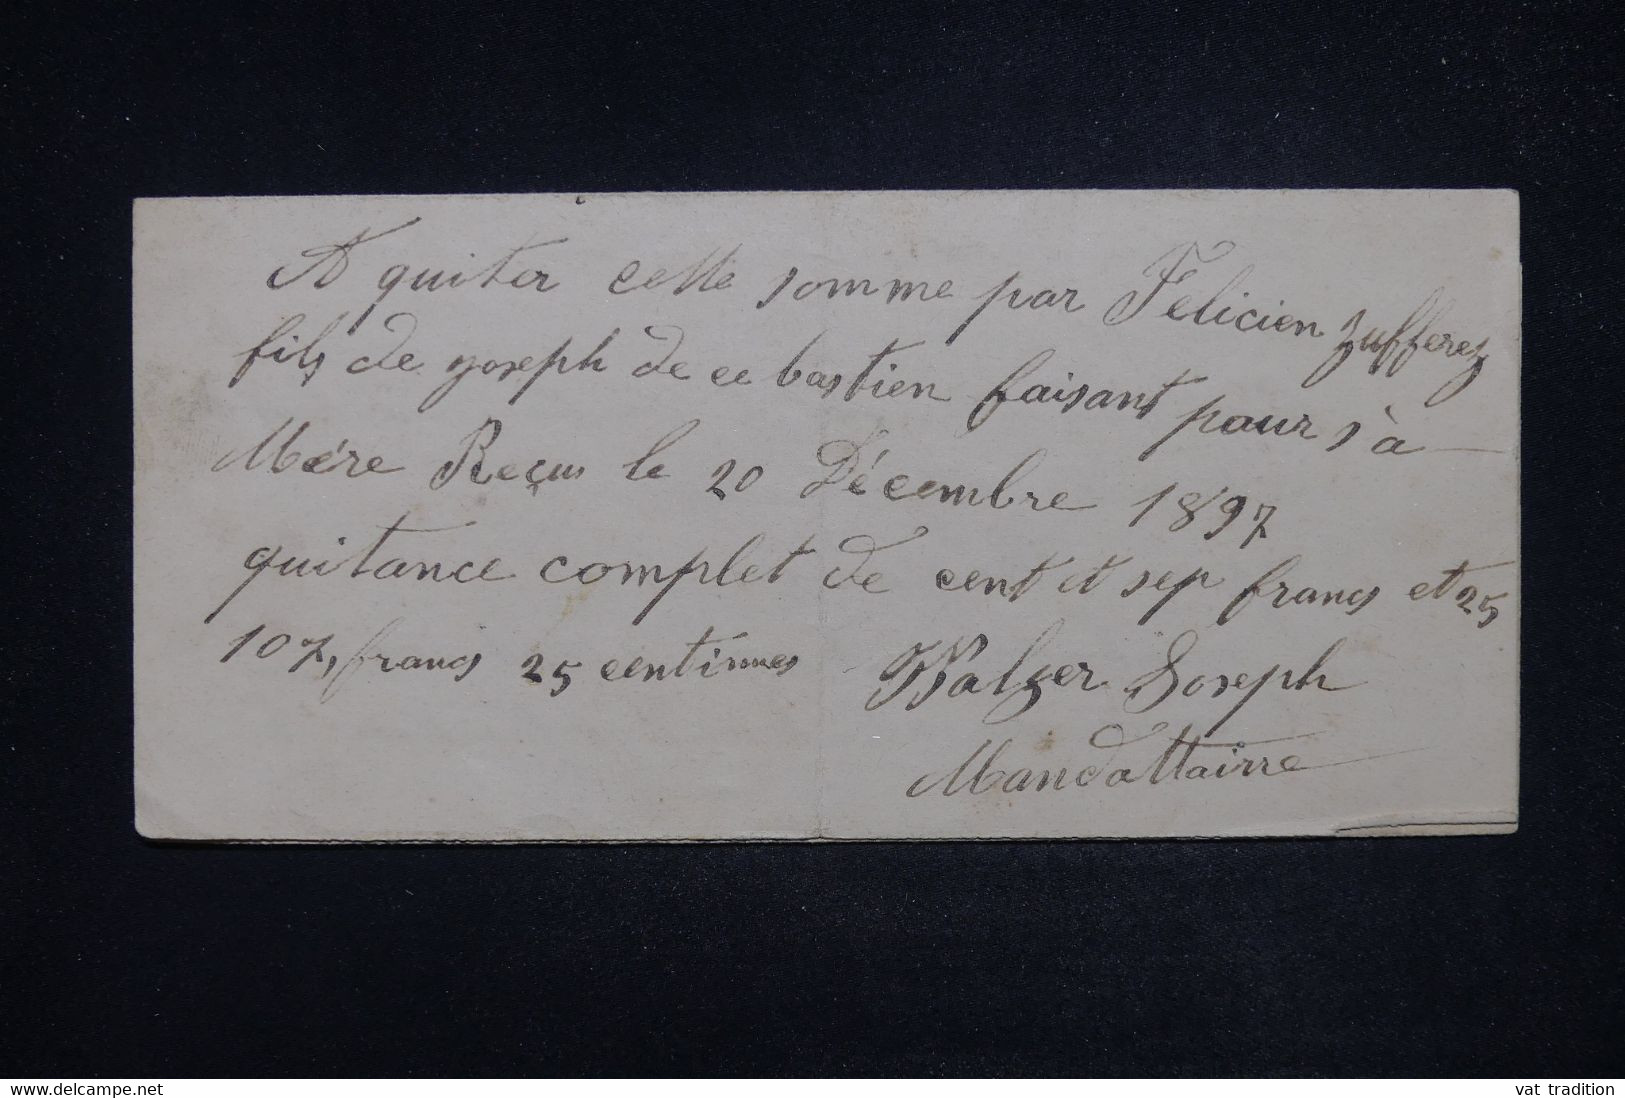 A quiter cette somme par Felicien Zufferey
fils de yoseph de ce bastien faisant pour s'a
Mére Reçus le 20 Décembre 1897
quitance complet de cent et sep francs et 25
107, francs 25 centimes Walzer Joseph
Mandattairre
www.delcampe.net
vat tradition